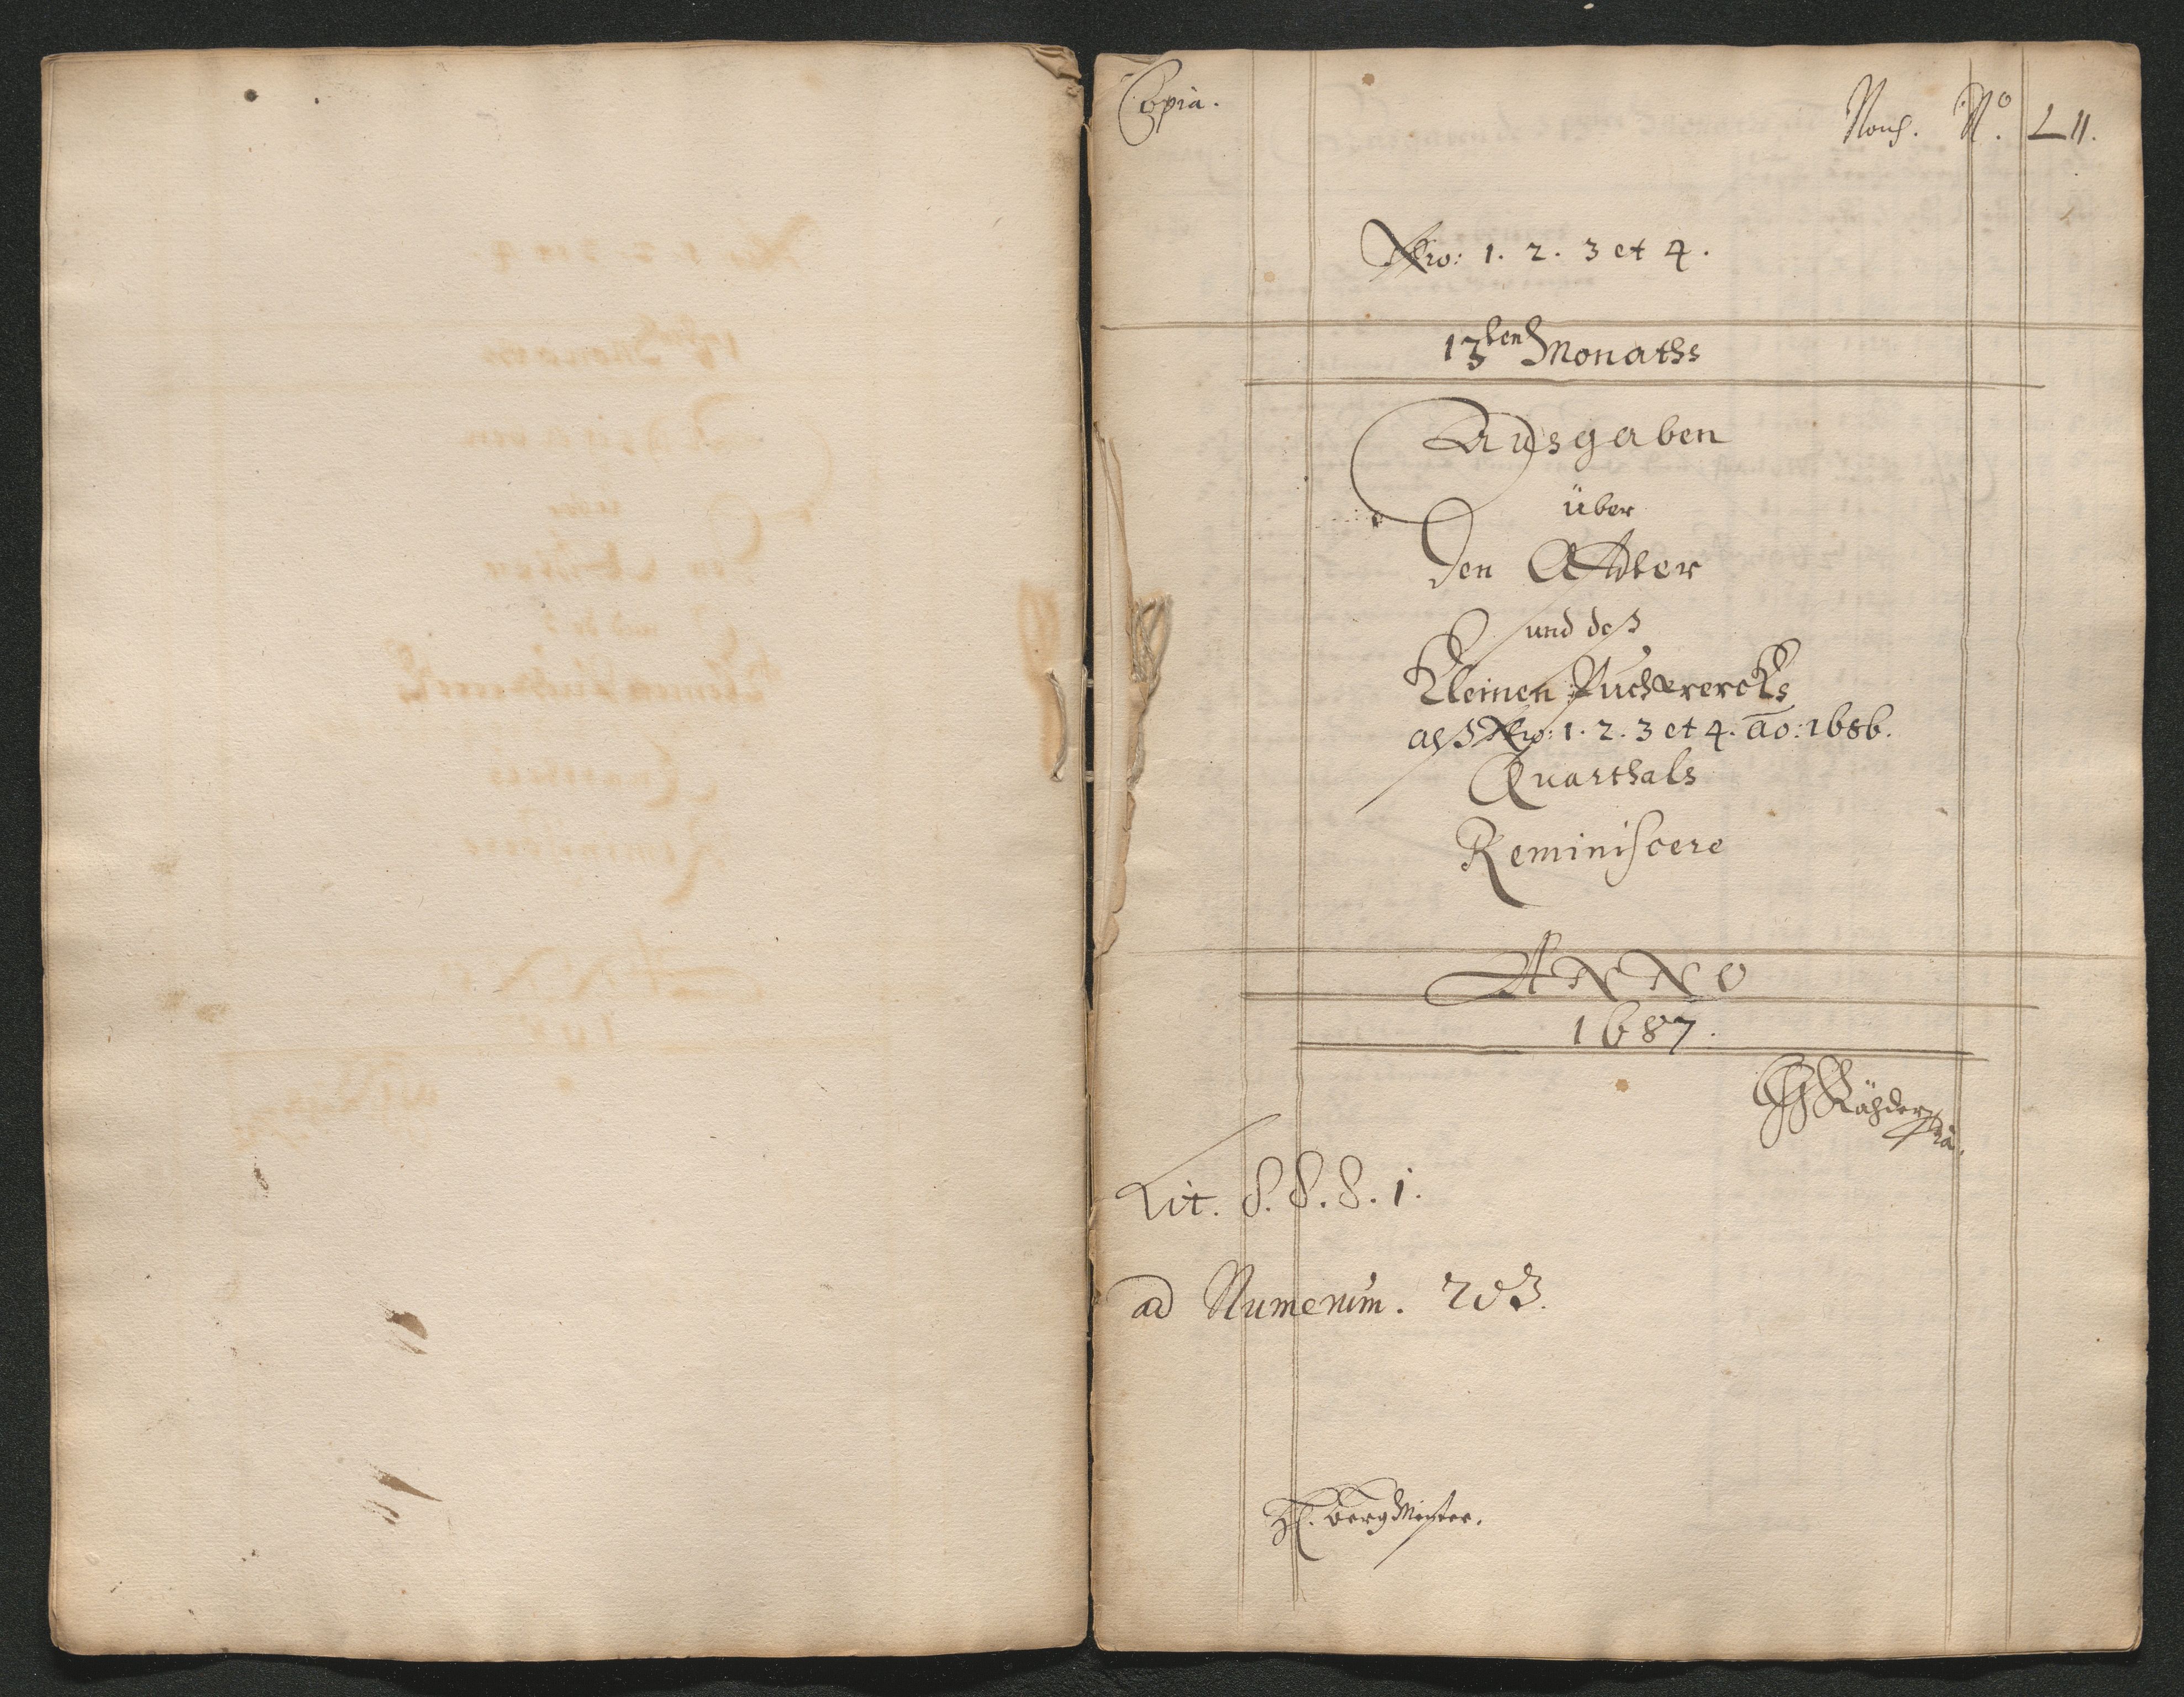 Copia.
No. LII.
Nro: 1. 2. 3 et 4.
13ten Monaths
Ausgaben
über
den Adler
und des
Kleinen Puchwercks
alß Nro: 1. 2. 3 et 4. ao: 1686.
Quarthals
Reminiscere
ANNO
1687.
Lit. S. S. S. 1.
ad Numerum. 203.
H. BergMeister.